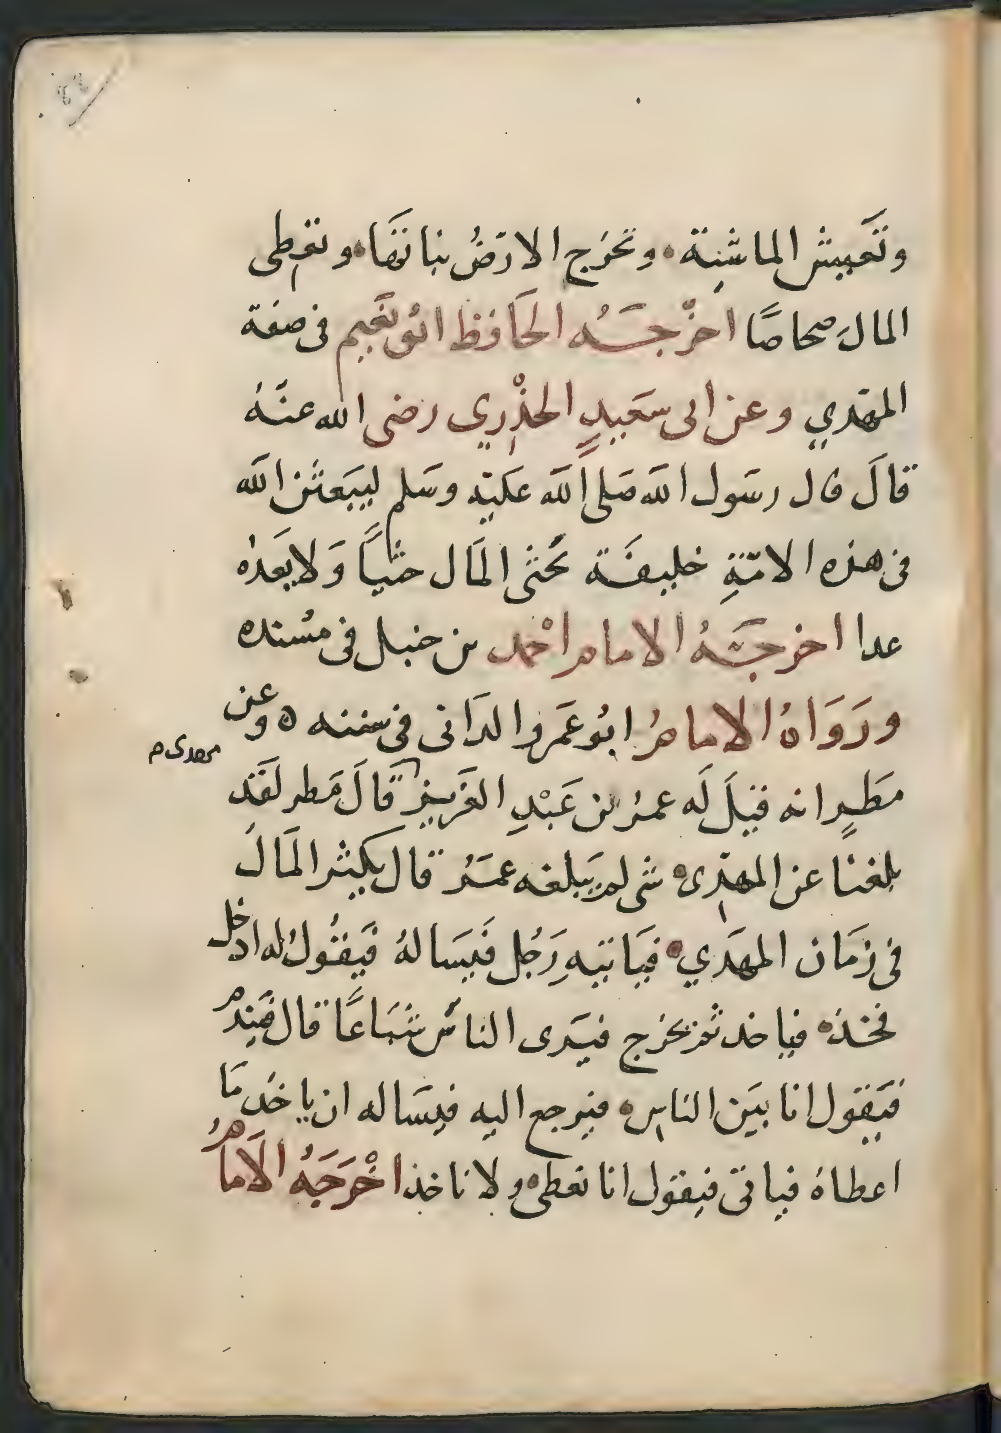 وتَعيش الماشية وتخرج الارضُ نباتَهَا وتعطى
المالَ صحاحًا اخرجَهُ الحَافظ ابُو نعَيم فى صفة
المهدي وعن ابى سَعيدٍ الخذْري رضى الله عنهُ
قالَ قال رسَول الله صَلى الله عَليه وسَلم ليبَعثن الله
فى هذه الامّةِ خليفَة يحُثى المَال حثيًا وَلا يعَدهُ
عدا اخرجَهُ الامام احْمد بن حنبل فى مسُنده
ورَوَاهُ الامامُ ابُو عمَرو الدَانى فى سننه ه وعن
مَطَرٍ انه قيلَ لَه عمرُ بن عَبْدِ العَزيز قَالَ مَطر لقَد
بلغنا عن المهدى شى لم يَبلغه عمَرُ قال يكثر المَالُ
فى زمَان المهَدي فيَاتيهِ رَجُل فَيسَالهُ فيَقُولُ له ادخل
فخذ فياخذ ثم يخرج فيَرى الناسُ شبَاعًا قال فيَندم
فيَقول انا بيَن الناس فيرجع اليه فيسَاله ان ياخُذ مَا
اعطاهُ فيابَى فيقول انا نعطى ولا ناخذ اخْرَجَهُ الاَمامُ